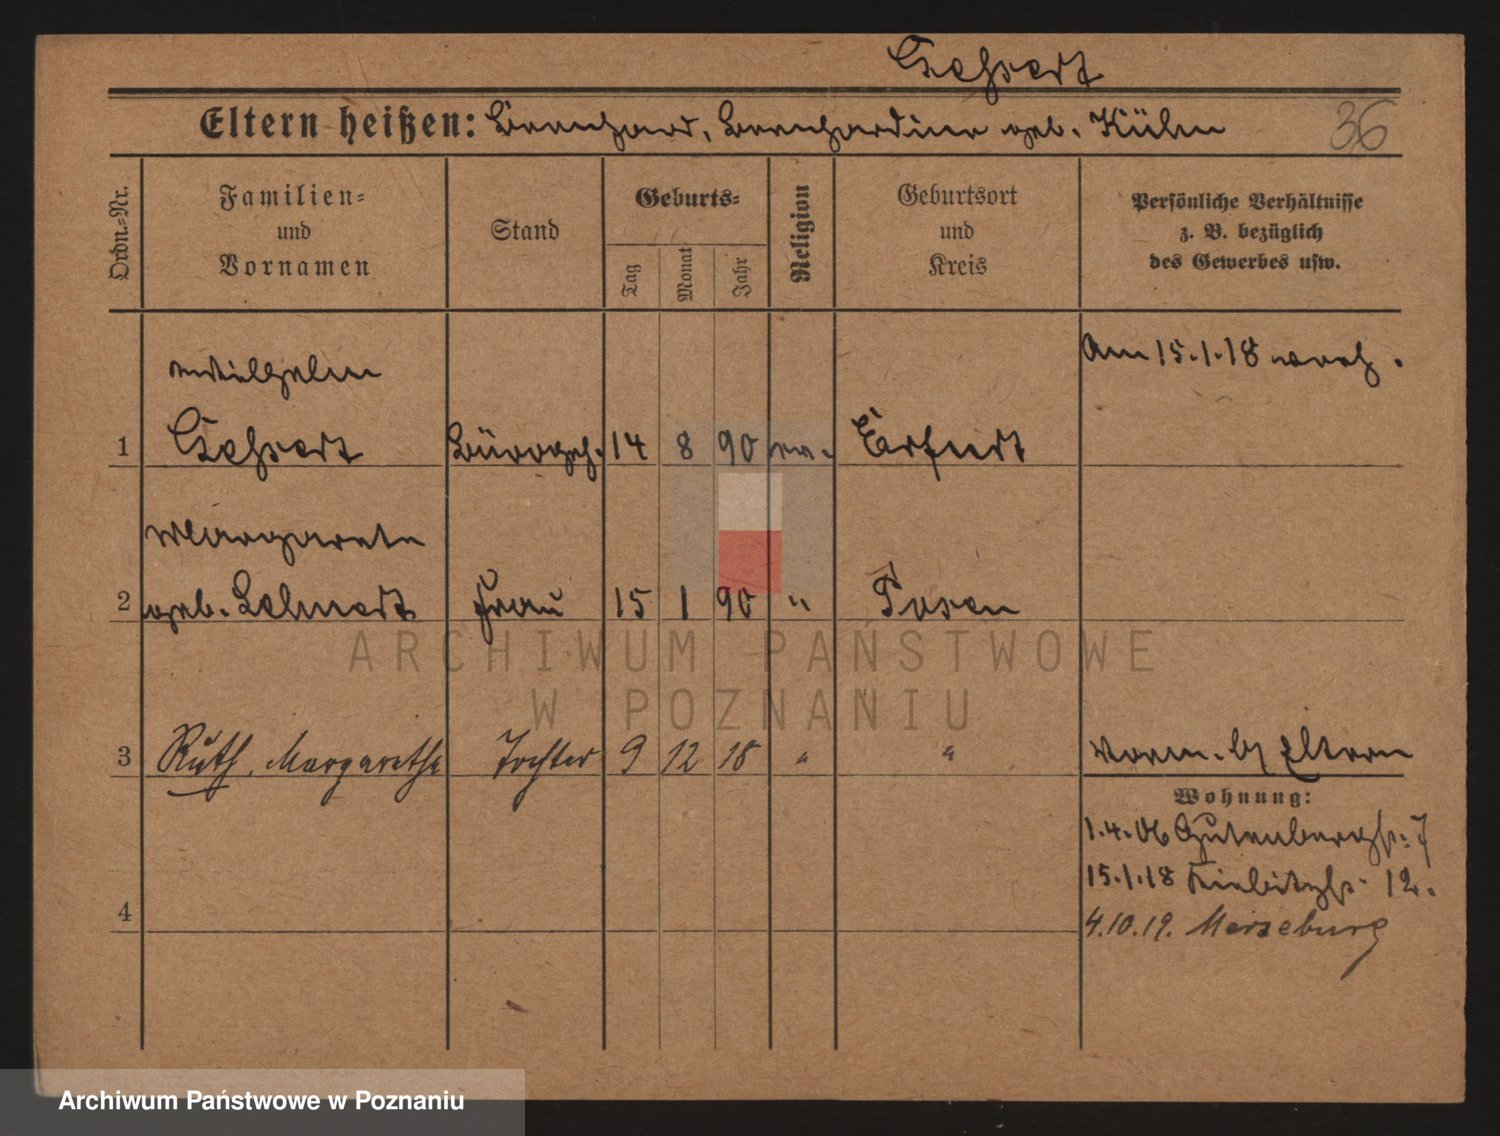 Eltern heißen: Bernhard, Bernhardine geb. Kühn
36
Ordn.-Nr.
Familien- und Vornamen
Stand
Geburts-
Tag
Monat
Jahr
Religion
Geburtsort und Kreis
Persönliche Verhältnisse z. B. bezüglich des Gewerbes usw.
Wilhelm
Am 15.1.18 verh.
1 Bürogeh. 14 8 90 ev. Erfurt
Margarete
2 geb. Lehnert Frau 15 1 90 " Posen
3 Ruth, Margarethe Tochter 9 12 18 " " Vorm. Eltern
Wohnung:
1.4.06 Gutenbergstr. 7
15.1.18 Kiebitzstr. 12.
4
4.10.19. Merseburg
ARCHIWUM PAŃSTWOWE
W POZNANIU
Archiwum Państwowe w Poznaniu